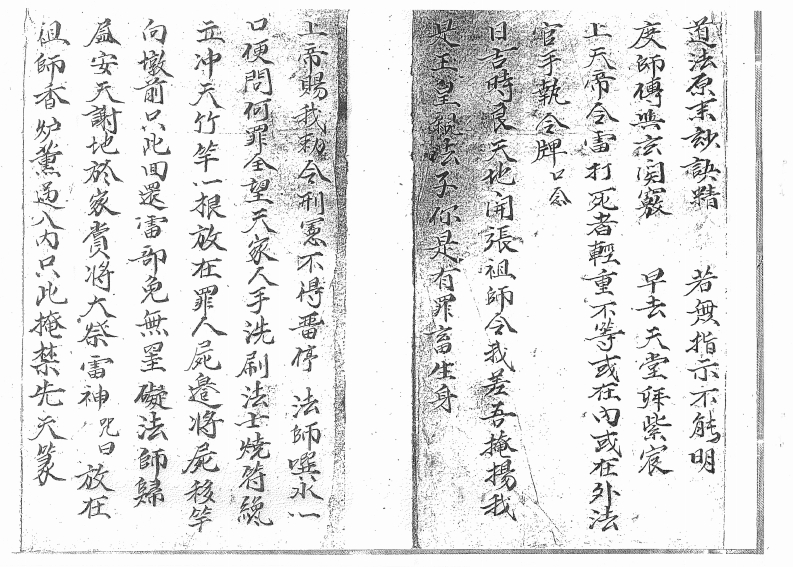 道法原未訣訣精　若無指示不能明
度師傳與玄関竅　早去天堂拜紫宸
上天帝令雷打死者輕重不等或在內或在外法
官手執令牌口念
日吉時良天地開張祖師令我差吾掩揚我
是玉皇親法子你是有罪畜生身
上帝賜我勅令刑憲不得暫停　法師噀水一
口便問何罪全望天家人手洗刷法士燒符纔
立冲天竹竿一根放在罪人屍邊將屍移竿
向墩前只此回還雷部免無罣礙法師歸
屋安天謝地於家賞將大祭雷神咒曰放在
祖師香炉薰過入內只此掩禁先天篆